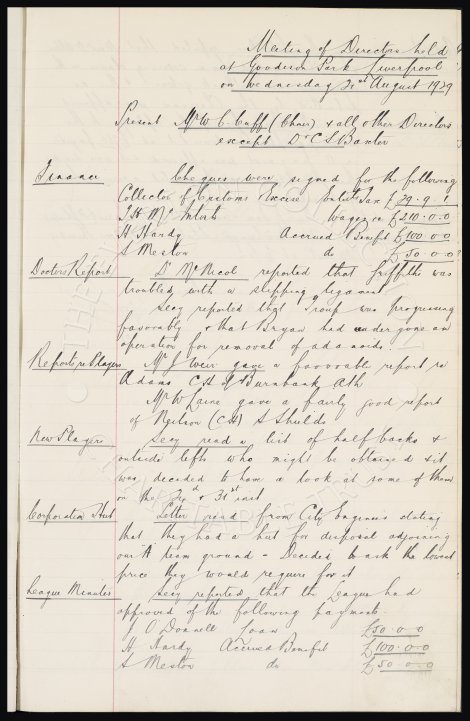 Meeting of Directors held
at Goodison Park Liverpool
on Wednesday 21st August 1929
Present Mr W. C. Cuff (Chair) & all other Directors
except Dr C S Baxter
Finance Cheques were signed for the following
Collector of Customs & Excise Entert Tax £29. 9. 1
T H McIntosh Wages &c £210. 0. 0
H Hardy Accrued Benefit £100. 0. 0
S Meston do £50. 0. 0
Doctors Report Dr McNicol reported that Griffiths was
troubled with a slipping ligament
Secy reported that Troup was progressing
favorably & that Bryan had undergone an
operation for removal of adanoids.
Reports re Players Mr J Weir gave a favorable report re
Adams C.H. of Burnbank Ath
Mr W Laine gave a fairly good report
of Neilson (C.H) S Shields
New Players Secy read a list of half backs &
outside lefts who might be obtained & it
was decided to have a look at some of them
on the & 31st inst
Corporation Hut Letter read from City Engineer stating
that they had a hut for disposal adjoining
our "A" team ground - Decided to ask the lowest
price they would require for it
League Minutes Secy reported that the League had
approved of the following payments.
J O'Donnell Loan £50. 0. 0
H Hardy Accrued Benefit £100. 0. 0
S Meston do £50. 0. 0